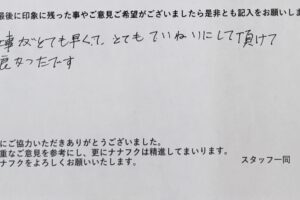 最後に印象に残った事やご意見ご希望がございましたら是非とも記入をお願いしま
事がとても早くて、とてもていねいにして頂けて
良かったです
にご協力いただきありがとうございました。
重なご意見を参考にし、更にナナフクは精進してまいります。
ナフクをよろしくお願いいたします。
スタッフ一同